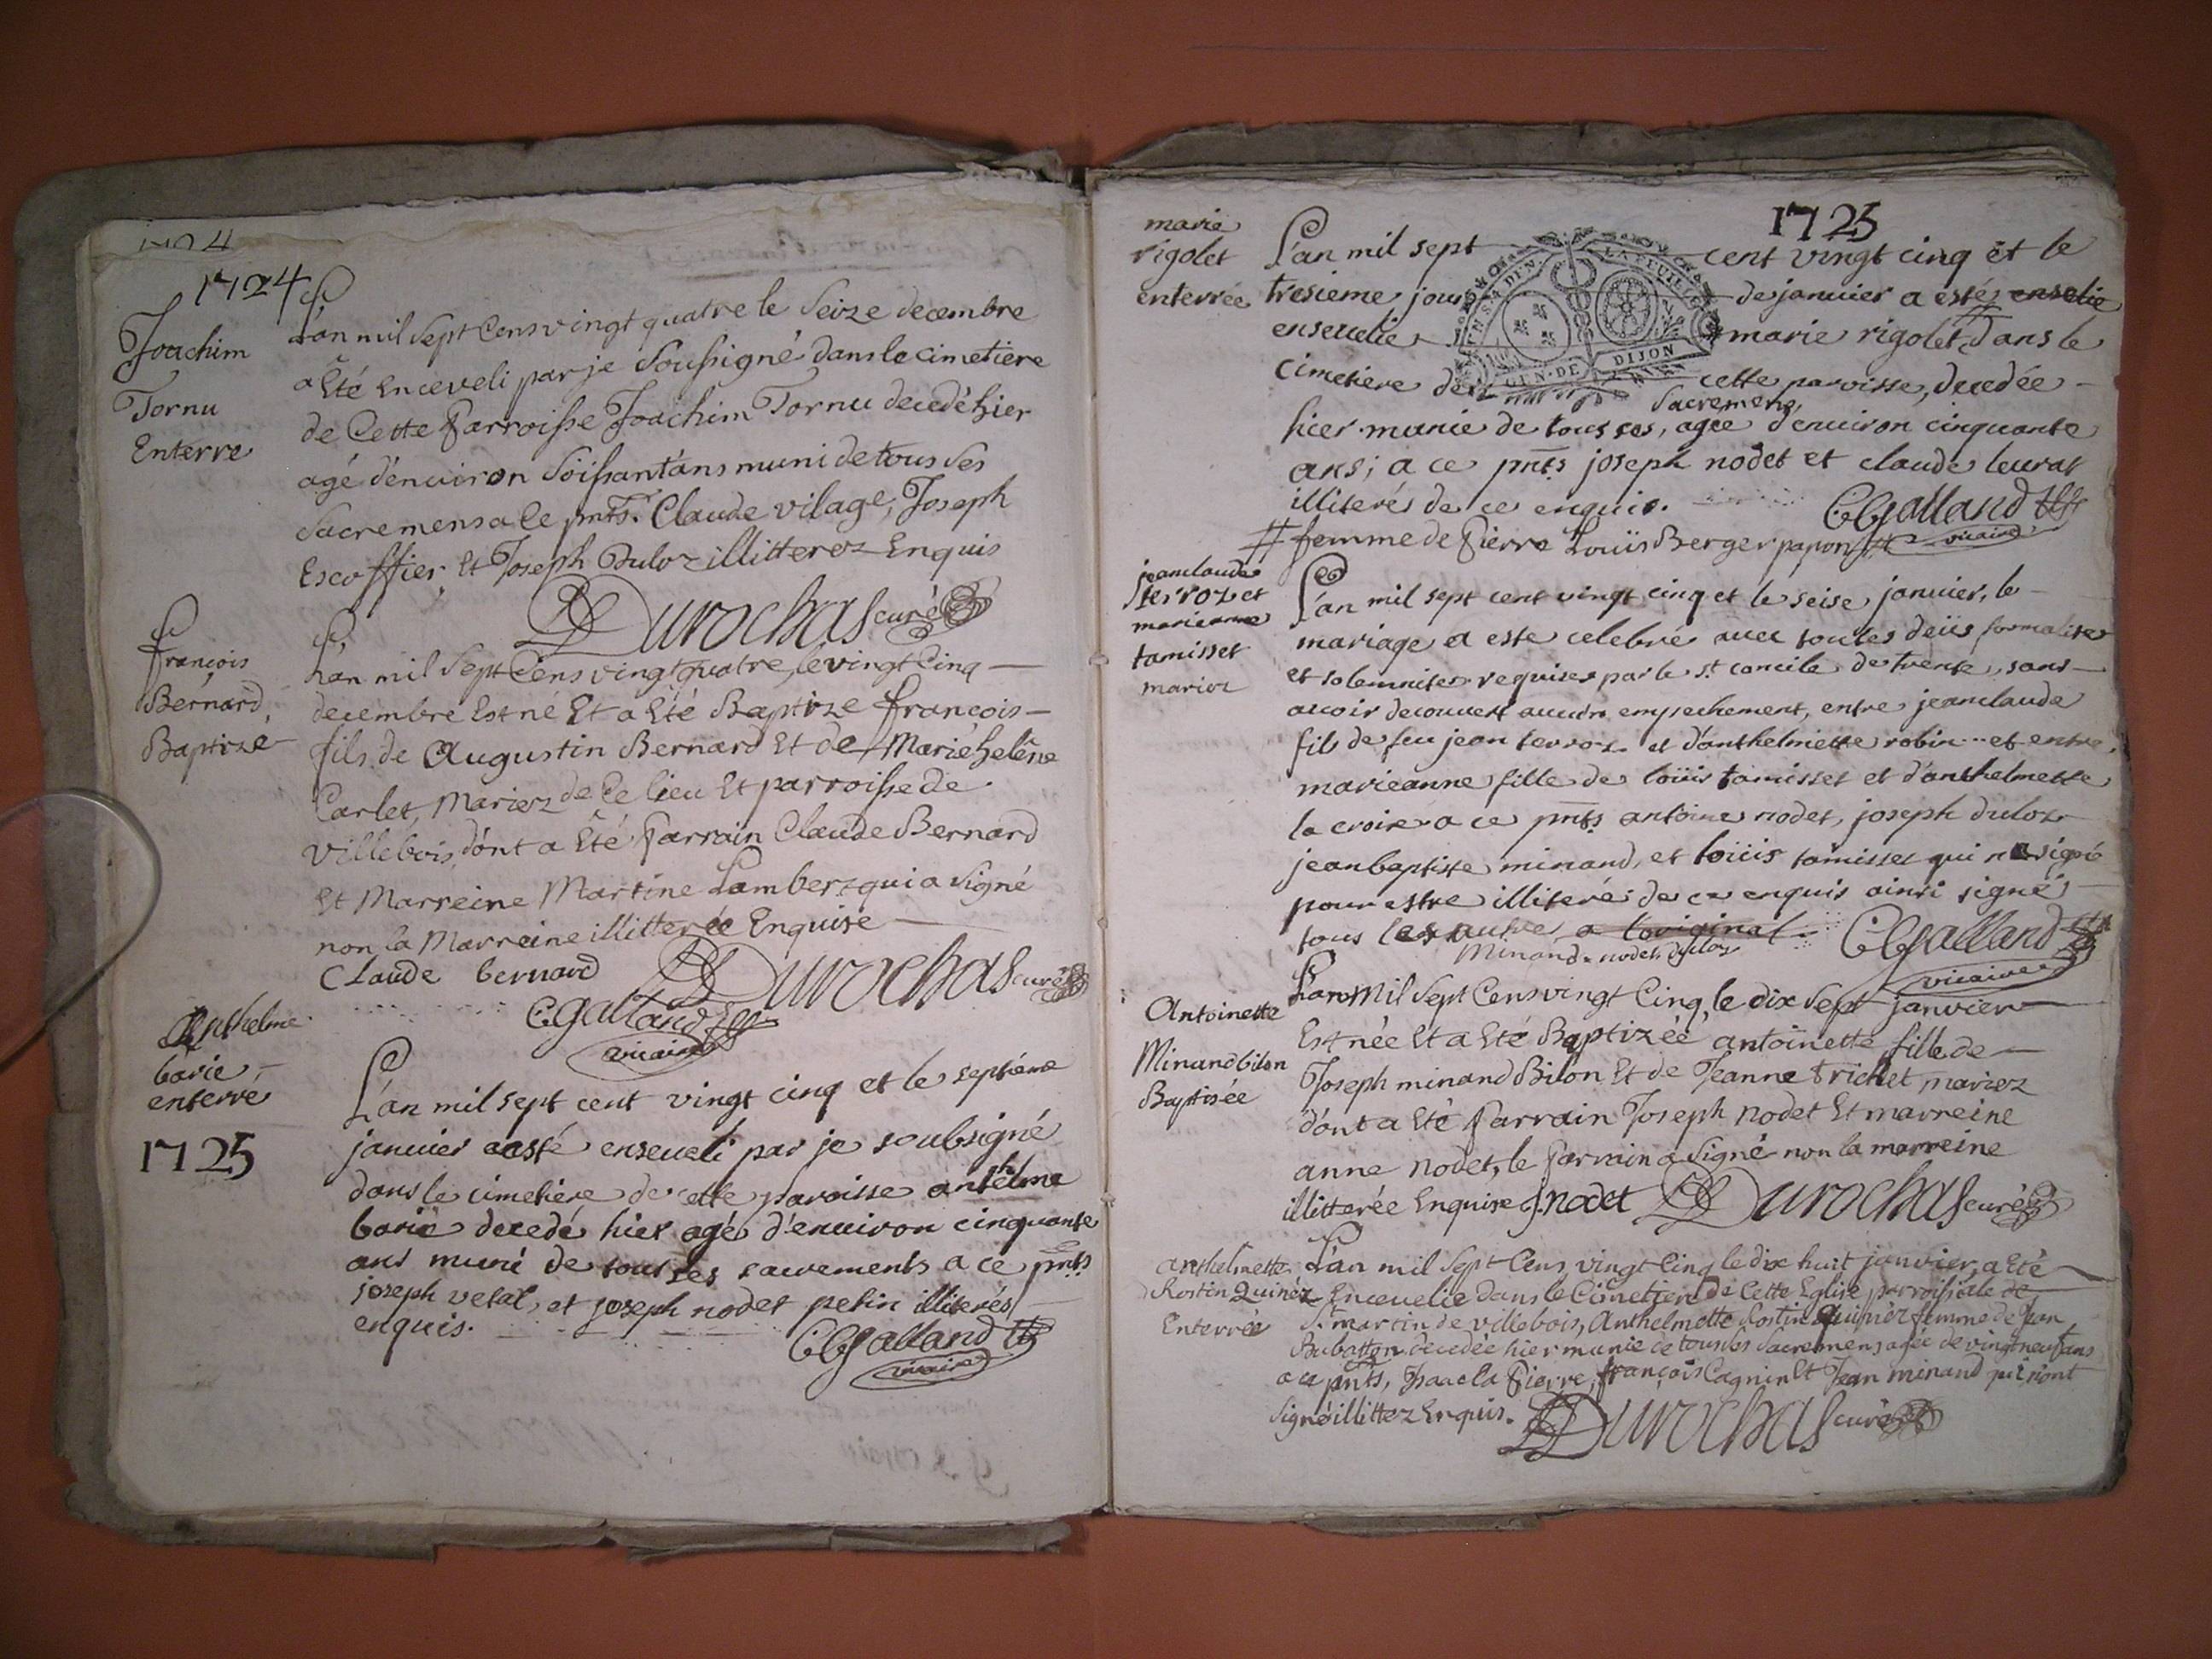 1724
1724
Joachim
Tornu
Enterre
L'an mil Sept Cens vingt quatre le Seize decembre
a Eté Enceveli par je Soussigné dans le cimetiere
de Cette Parroisse Joachim Tornu decedé hier
agé d'enuiron Soissant'ans muni de tous Ses
Sacremens a Ce pnts. Claude vilage, Joseph
Escoffier, Et Joseph Duloz illitterez Enquis
Durochas curé
françois
Bernard
Baptizé
L'an mil Sept Cens vingt quatre, le vingt Cinq
decembre Est né Et a Eté Baptize françois
fils de Augustin Bernard Et de Marie helêne
Carlet, Mariez de Ce lieu Et parroisse de
villebois, dont a Eté Parrain Claude Bernard
Et Marreine Martine Lambert qui a Signé
non la Marreine illitterée Enquise
Claude bernard Durochas curé
CGalland
vicaire
Anthelme
barie
enterré
1725
L'an mil sept cent vingt cinq et le septiéme
januier a esté enseueli par je soubsigné
dans le cimetiere de cette paroisse anthelme
barie decedé hier agé d'enuiron cinquante
ans muni de tous ses sacrements a ce pnts
joseph vetat, et joseph nodet petin illiterés
enquis.
CGalland
vicaire
1725
marie
rigolet
enterrée
L'an mil sept cent vingt cinq et le
tresieme jour de januier a esté enselie
enseuelie marie rigolet, # dans le
cimetiere de cette paroisse, decedée
Sacremens
hier munie de tous ses, agee d'enuiron cinquante
ans; a ce pnts joseph nodet et claude leurat
illiterés de ce enquis.
CGalland
# femme de Pierre Louïs Berger papon #
vicaire
GEN. DE DIJON
jeanclaude
terroz et
marieanne
tamisset
mariez
L'an mil sept cent vingt cinq et le seise januier, le
mariage a este celebré auec toutes deües formalites
et solemnites requises par le st concile de trente, sans
auoir decouvert aucun empechement, entre jeanclaude
fils de feu jean terroz et d'anthelmette robin et entre
marieanne fille de loüis tamisset et d'anthelmette
la croix a ce pnts antoine nodet, joseph duloz
jeanbaptiste minand, et loüis tamisset qui n'a signé
pour estre illiteré de ce enquis ainsi signé
tous les autres a l'original.
Minand nodet duloz
CGalland
vicaire
Antoinette
Minand bilon
Baptisée
L'an Mil Sept Cens vingt Cinq, le dix Sept janvier
Est née Et a Eté Baptizéé antoinette fille de
Joseph minand Bilon Et de Jeanne trichet, mariez
dont a Eté Parrain Joseph nodet Et marreine
anne nodet, le Parrain a Signé non la marreine
illitterée Enquise J. nodet Durochas curé
anthelmette
Rostin Quinéz
Enterrée
L'an mil Sept Cens vingt Cinq le dix huit janvier a Eté
Enceuelie dans le Cimetiere de Cette Eglise parroissiale de
St. martin de villebois, Anthelmette Rostin Quinéz femme de Jean
Bubatton decedée hier munie de tous les Sacremens agée de vingt neuf ans
a ce pnts, Isaac la Pierre, françois Cagnin Et Jean minand qui n'ont
Signé illittez Enquis. Durochas curé